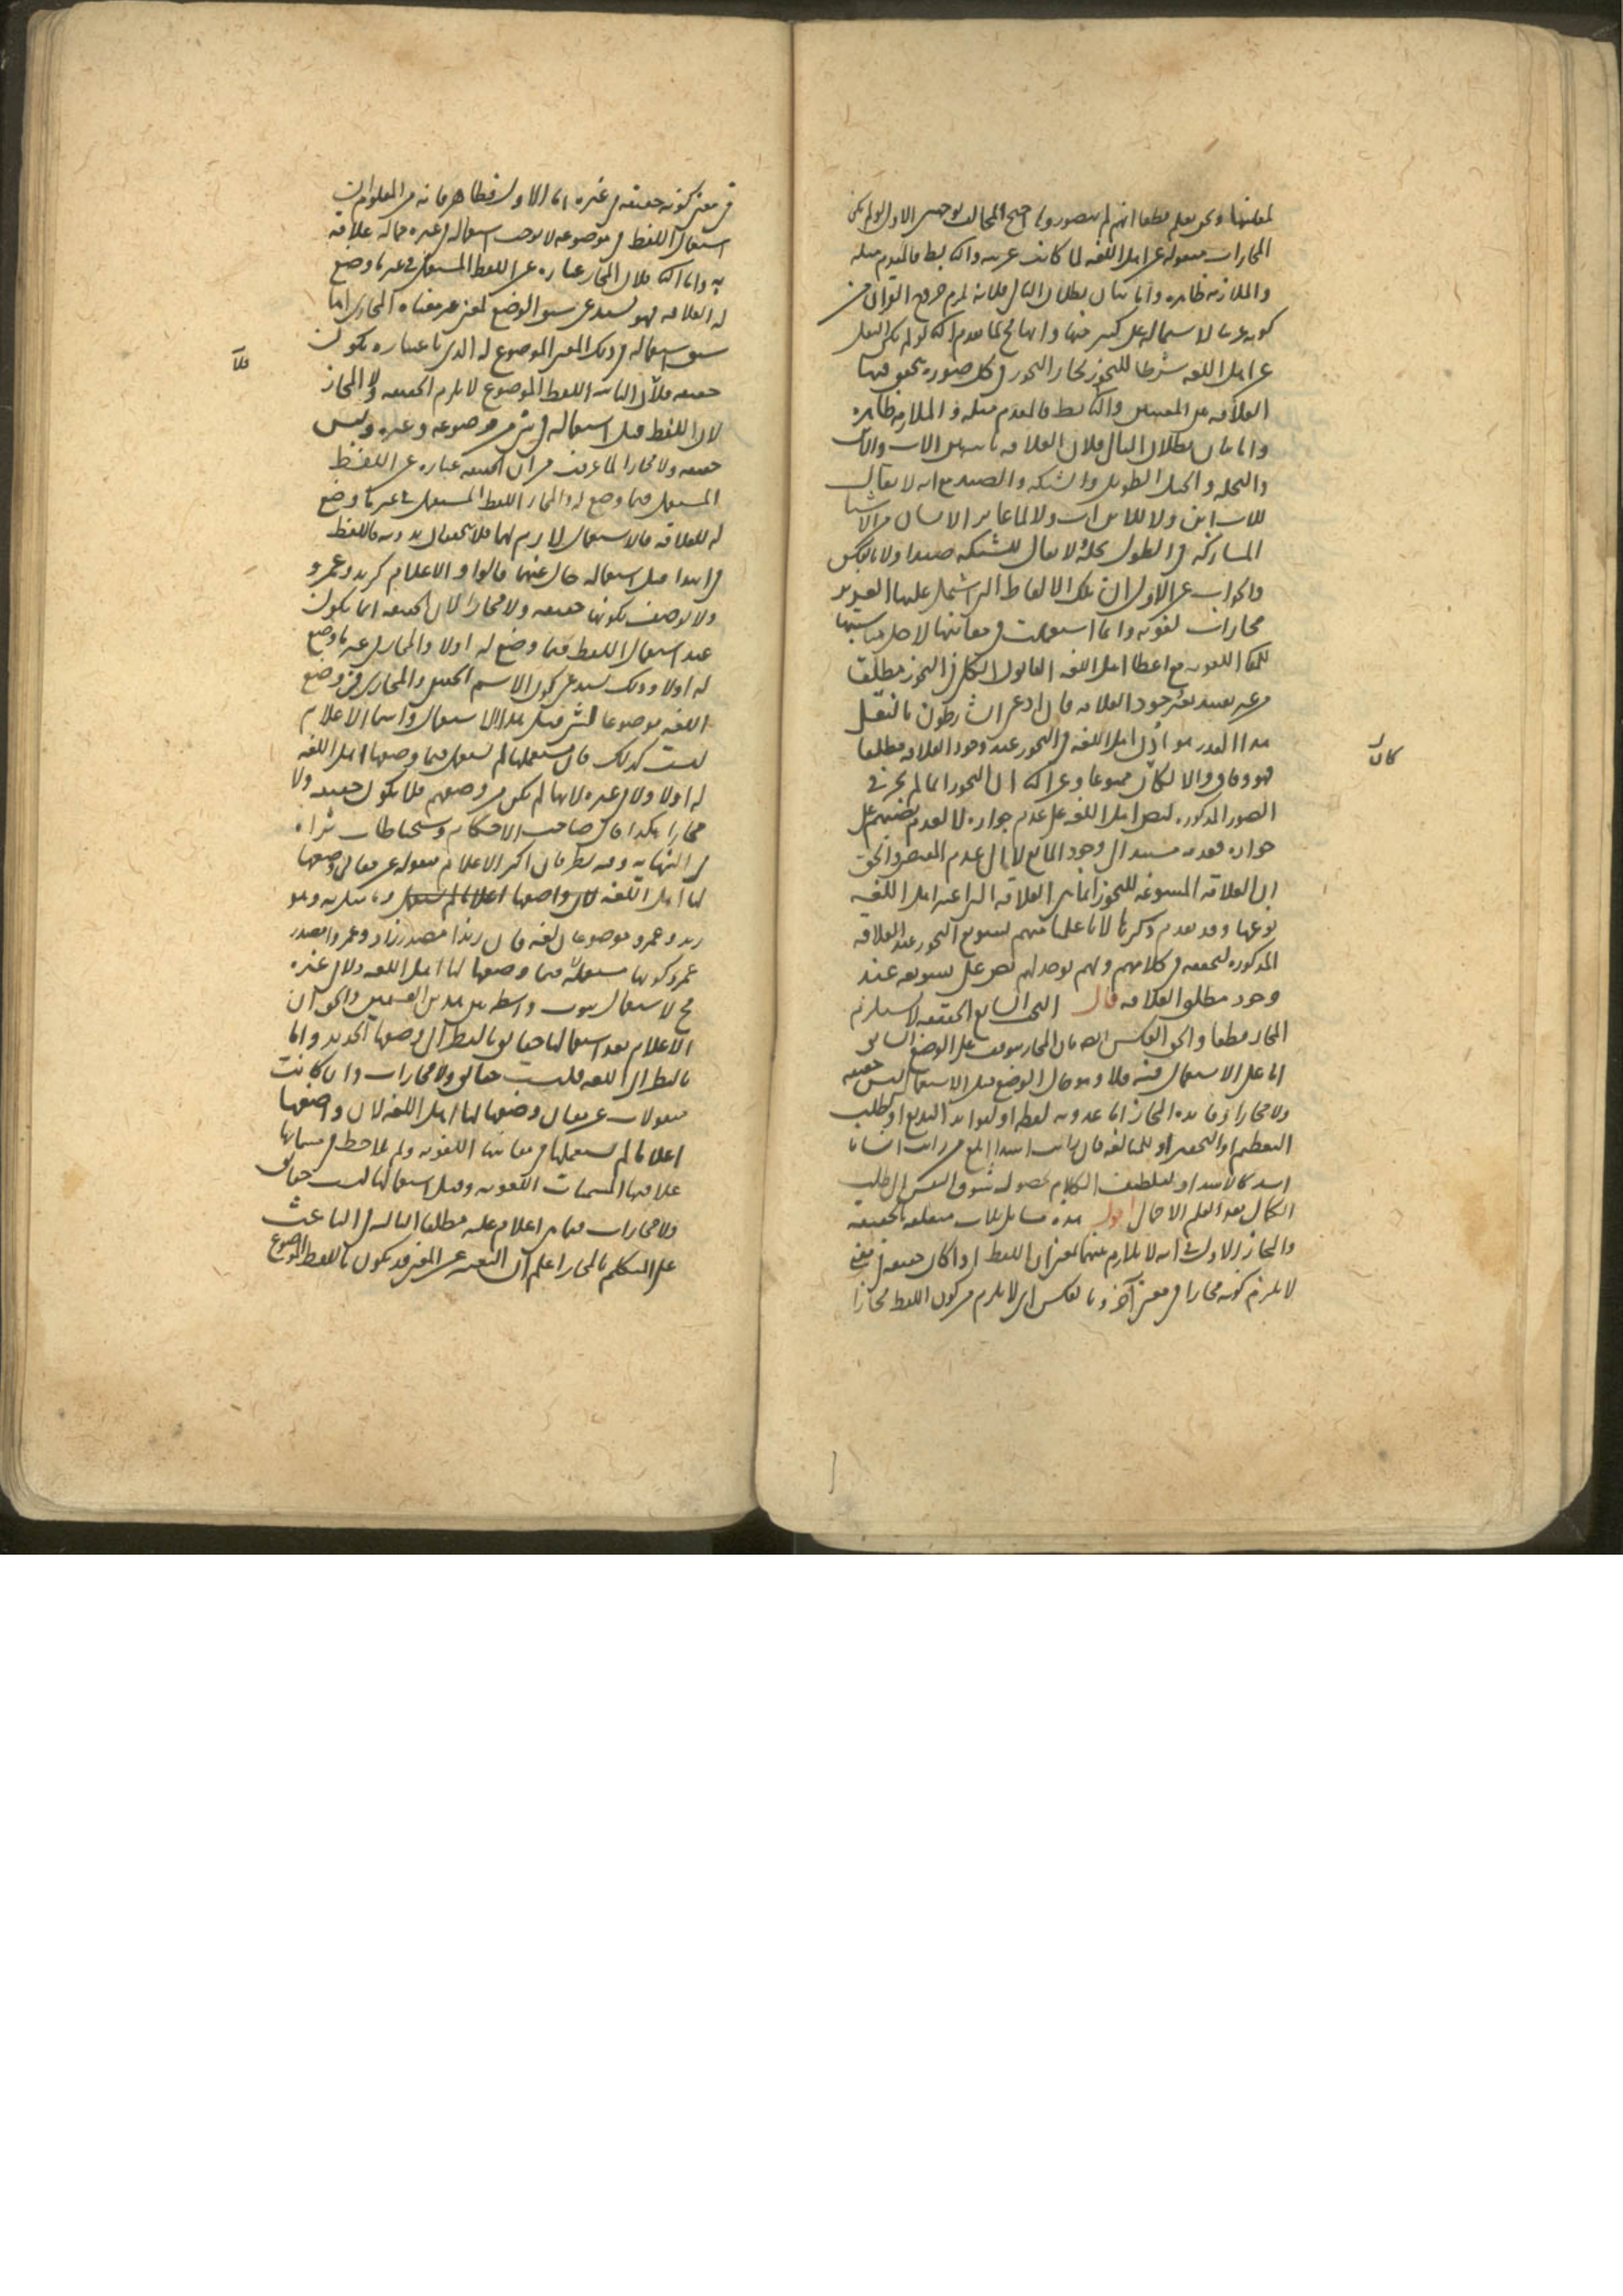 لمعلتها ونحن نعلم قطعا انهم لم يتصوروها احتج المخالف بوجهين الاول لو لم يكن
المجازات منقوله عن اهل اللغه لما كانت عربيه والتالى بط فالمقدم مثله
والملازمه ظاهره واما بيان بطلان التالى فلانه يلزم خروج القران عن
كونه عربيا لاشتماله على كثير منها وانه لم كما تقدم الثانى لو لم يكن النقل
عن اهل اللغه شرطا للتجوز لجاز التجوز فى كل صوره تحقق فيها
العلاقه بين المعنيين والتالى بط فالمقدم مثله والملازمه ظاهره
واما بيان بطلان التالى فلان العلاقه ثابته بين الاب والابن
والنخله والحبل الطويل والشبكه والصيد مع انه لا يقال
للاب ابن ولا للابن اب ولا لما غاير الانسان من الاشيا
المشاركه فى الطول نخله ولا يقال للشبكه صيدا ولا بالعكس
والجواب عن الاول ان تلك الالفاظ التى اشتمل عليها القران
مجازات لغويه وانما استعملت فى معانيها لاجل مناسبتها
للحقايق اللغويه مع اعطا اهل اللغه القانون الكلى فى التجوز مطلقا
من غير تقييد بعد وجود العلاقه فان ادعى الشارطون بالنقل
هذا القدر هو اذن اهل اللغه فى التجوز عند وجود العلاقه مطلقا
فهو وفاق والا لكان ممنوعا وعن الثانى ان التجوز انما لم يجز فى
الصور المذكوره لنص اهل اللغه على عدم جوازه لا لعدم نصهم على
جوازه فعدمه مستند الى وجود المانع لا الى عدم المقتضى والحق
ان العلاقه المسوغه للتجوز انما هى العلاقه التى اعتبر اهل اللغه
نوعها وقد تقدم ذكرها لانا علمنا منهم تسويغ التجوز عند العلاقه
المذكوره لتحققه فى كلامهم ولم يوجد لهم نص على تسويغه عند
وجود مطلق العلاقه قال البحث السابع الحقيقه لا تستلزم
المجاز قطعا والحق العكس ايضا فان المجاز يتوقف على الوضع السابق
اما على الاستعمال فيه فلا وهو حال الوضع قبل الاستعمال ليس حقيقه
ولا مجازا وفايده المجاز اما عذوبه لفظه او لفوايد البديع او لطلب
التعظيم او التحقير او للمبالغه فان رايت اسدا ابلغ من رايت انسانا
اسد كالاسد او لتلطيف الكلام لحصول شوق النفس الى طلب
الكمال بعد العلم الاجمالى اقول هذه مسايل ثلاث متعلقه بالحقيقه
والمجاز الاولى فى انه لا تلازم بينهما بمعنى ان اللفظ اذا كان حقيقه فى معنى
لا يلزم كونه مجازا فى معنى آخر وبالعكس اى لا يلزم من كون اللفظ مجازا
كان
فى معنى كونه حقيقه فى غيره اما الاول فظاهر فانه من المعلوم ان
استعمال اللفظ فى موضوعه لا يوجب استعماله فى غيره مما له علاقه
به واما الثانى فلان المجاز عباره عن اللفظ المستعمل فى غير ما وضع
له لعلاقه فهو يستدعى سبق الوضع لمعنى غير معناه المجازى اما
سبق استعماله فى ذلك المعنى الموضوع له الذى باعتباره يكون
حقيقه فلا الثانيه اللفظ الموضوع لا يلزم الحقيقه ولا المجاز
لان اللفظ قبل استعماله فى شى من موضوعه وغيره وليس
حقيقه ولا مجازا لما عرفت من ان الحقيقه عباره عن اللفظ
المستعمل فيما وضع له والمجاز اللفظ المستعمل فى غير ما وضع
له للعلاقه فالاستعمال لازم لهما فلا يتحققان بدونه فاللفظ
فى ابتدا قبل استعماله خال عنهما قالوا والاعلام كزيد وعمرو
ولا يوصف بكونها حقيقه ولا مجازا لان الحقيقه انما يكون
عند استعمال اللفظ فيما وضع له اولا والمجاز فى غير ما وضع
له اولا وذلك يستدعى كون الاسم الحقيقى والمجازى فى وضع
اللغه موضوعا لشى قبل هذا الاستعمال واسما الاعلام
ليست كذلك فان مستعملها لم يستعملها فيما وضعها اهل اللغه
له اولا ولا فى غيره لانها لم تكن من وضعهم فلا يكون حقيقه ولا
مجازا هكذا قال صاحب الاحكام
فى النهايه وفيه نظر فان اكثر الاعلام منقوله عن معان وضعها
لها اهل اللغه لان واضعها اعلاما لم يستعمل
زيد وعمرو موضوعان لغه فان زيدا مصدر زاد وعمروا مصدر
عمر وكونها مستعمله فيما وضعها لها اهل اللغه ولا فى غيره
مح لا ستعمال ثبوت واسطه بين هذين القسمين والحق ان
الاعلام بعد استعمالها حقايق بالنظر الى وضعها الجديد واما
بالنظر الى اللغه فليست حقايق ولا مجازات وان كانت
منقولات عن معان وضعها لها اهل اللغه لان واضعها
اعلاما لم يستعملها فى معانيها اللغويه ولم يلاحظ فى مسمياتها
علاقتها المسميات اللغويه وقبل استعمالها ليست حقايق
ولا مجازات فما هى اعلام عليه مطلقا الثالثه فى الباعث
على التكلم بالمجاز اعلم ان التعبير عن المعنى قد يكون باللفظ الموضوع
فلا